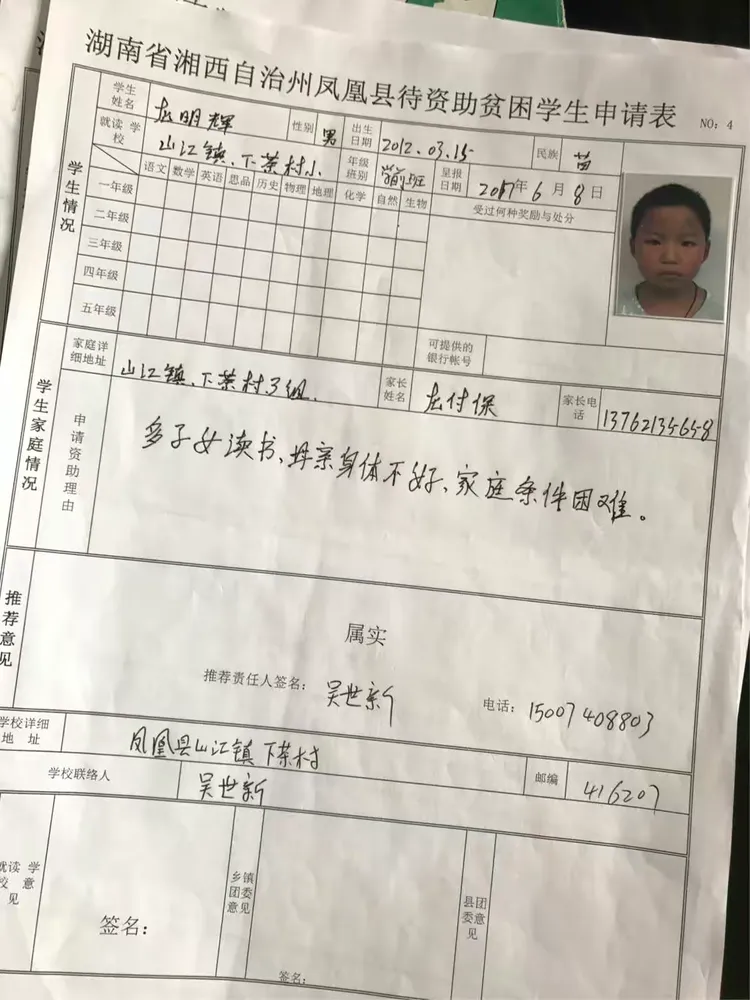 湖南省湘西自治州凤凰县待资助贫困学生申请表
NO：4
学生情况
学生姓名 龙明辉 性别 男 出生日期 2012.03.15 民族 苗
就读学校 山江镇、下茶村小 年级班别 学前班 呈报日期 2017年6月8日
语文 数学 英语 思品 历史 物理 地理 化学 自然 生物 受过何种奖励与处分
一年级
二年级
三年级
四年级
五年级
学生家庭情况
家庭详细地址 山江镇、下茶村3组. 可提供的银行帐号
家长姓名 龙付保 家长电话 13762135658
申请资助理由
多子女读书、母亲身体不好、家庭条件困难。
推荐意见
属实
推荐责任人签名： 吴世新 电话： 15007408803
学校详细地址 凤凰县山江镇下茶村 邮编 416207
学校联络人 吴世新
就读学校意见 签名：
乡镇团委意见 签名：
县团委意见